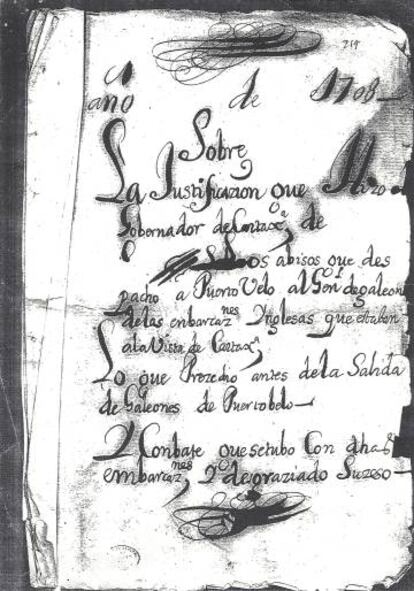 219
año de 1708
Sobre
La Justificazion que Hizo el
Gobernador de Cartaxª, de
los abisos que des
pacho a Puerto Velo al Genl de galeon
de las embarcaznes Ynglesas que estaban
a la Vista de Cartaxª,
Lo que Prozedio antes de la Salida
de Galeones de Puertobelo—
Y Conbate que se tubo Con dhas
embarcaznes, Y desgraziado Suzeso—